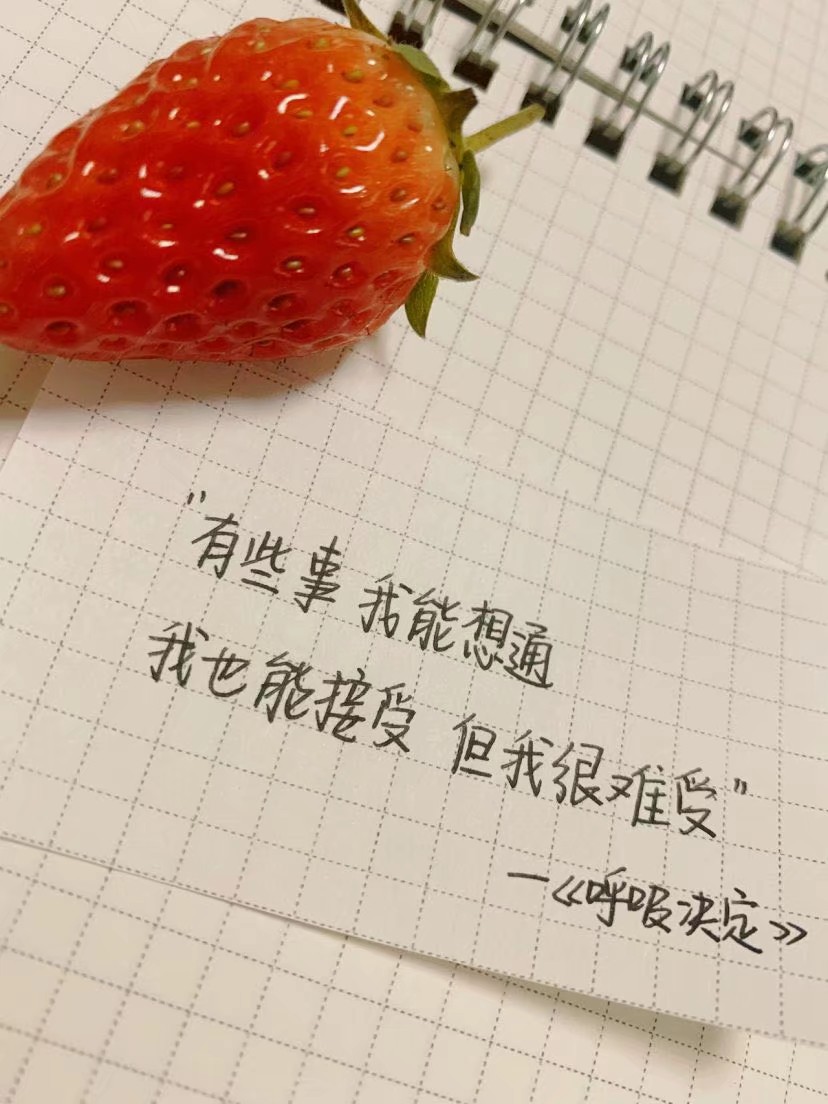 "有些事 我能想通
我也能接受 但我很难受"
—《呼吸决定》